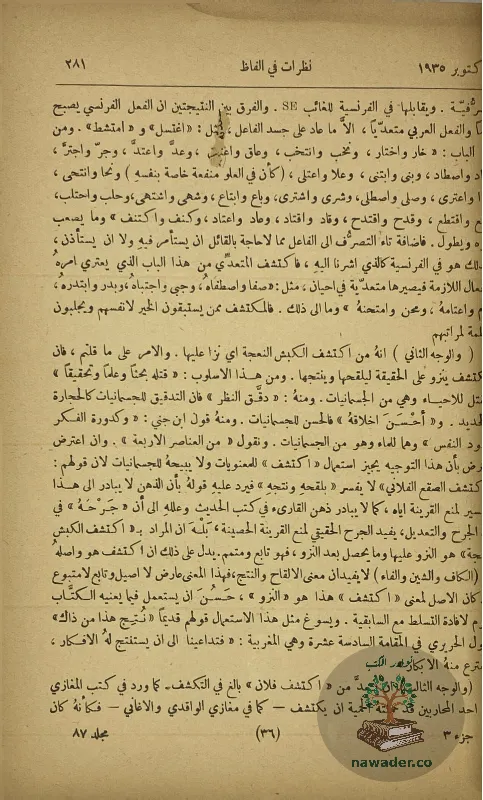 كتوبر ١٩٣٥ نظرات في الفاظ ٢٨١
ـرُّفيَّة . ويقابلها في الفرنسية للغائب SE . والفرق بين النتيجتين ان الفعل الفرنسي يصبح
والفعل العربي متعدّياً ، الاَّ ما عاد على جسد الفاعل ، مثل : « اغتسل » و « امتشط » . ومن
الباب : « خار واختار ، ونخب وانتخب ، وعاق واعتاق ، وعدَّ واعتدَّ ، وجرّ واجترَّ ،
واصطاد ، وبنى وابتنى ، وعلا واعتلى ، (كأن في العلو منفعة خاصة بنفسهِ) ونحا وانتحى ،
واعترى ، وصلى واصطلى ، وشرى واشترى ، وباع وابتاع ، وشهى واشتهى ، وحلب واحتلب ،
واقتطع ، وقدح واقتدح ، وقاد واقتاد ، وعاد واعتاد ، وكنف واكتنف » وما يصعب
ويطول . فاضافة تاء التصرُّف الى الفاعل مما لاحاجة بالقائل ان يستأمر فيهِ ولا ان يستأذن ،
هو في الفرنسية كالذي اشرنا اليهِ ، فاكتشف المتعدّي من هذا الباب الذي يعتري امرهُ
اللازمة فيصيرها متعدّية في احيان ، مثل : « صفا واصطفاهُ ، وجبي واجتباهُ ، وبدر وابتدرهُ ،
واعتامهُ ، ومحن وامتحنهُ » وما الى ذلك . فالمكتشف ممن يستبقون الخير لانفسهم ويجلبون
لمراتبهم
( والوجه الثاني ) انهُ من اكتشف الكبش النعجة اي نزا عليها . والامر على ما قلتم ، فان
ينزو على الحقيقة ليلقحها وينتجها . ومن هذا الاسلوب : « قتله بحثاً وعلماً وتحقيقاً »
للاحياء وهي من الجسمانيات . ومنهُ : « دقَّق النظر » فان التدقيق للجسمانيات كالحجارة
و« أحْسَنَ اخلاقهُ » فالحسن للجسمانيات . ومنهُ قول ابن جني : « وكدورة الفكر
النفس » وهما للماء وهو من الجسمانيات . ونقول « من العناصر الاربعة » . وان اعترض
بأن هذا التوجيه يجيز استعمال « اكتشف » للمعنويات ولا يبيحهُ للجسمانيات لان قولهم :
الصقع الفلاني » لا يفسر « بلقحهِ ونتجهِ » فيرد عليهِ قولهُ بأن الذهن لا يبادر الى هذا
لمنع القرينة اياه ، كما لا يبادر ذهن القارىء في كتب الحديث وعلله الى أن « جَرْحَهُ » في
الجرح والتعديل ، يفيد الجرح الحقيقي لمنع القرينة الحصينة ، بَلْهَ ان المراد به « اكتشف الكبش
» هو النزو عليها وما يحصل بعد النزو ، فهو تابع ومتمم . يدل على ذلك ان اكتشف هو واصله
(الكاف والشين والفاء) لا يفيدان معنى الالقاح والنتج ، فهذا المعنى عارض لا اصيل وتابع لامتبوع
كان الاصل لمعنى « اكتشف » هذا هو « النزو » ، حَسُنَ ان يستعمل فيما يعنيه الكتَّاب
لافادة التسلط مع السابقية . ويسوغ مثل هذا الاستعمال قولهم قديماً « نُتِج هذا من ذاك »
الحريري في المقامة السادسة عشرة وهي المغربية : « فتداعينا الى ان يستنتج لهُ الافكار ،
منهُ الابكار
(والوجه الثالث) من « اكتشف فلان » بالغ في التكشف . كما ورد في كتب المغازي
احد المحاربين الحمية ان يكتشف — كما في مغازي الواقدي والاغاني — فكأنهُ كان
جزء ٣ (٣٦) مجلد ٨٧
نوادر الكتب
nawader.co